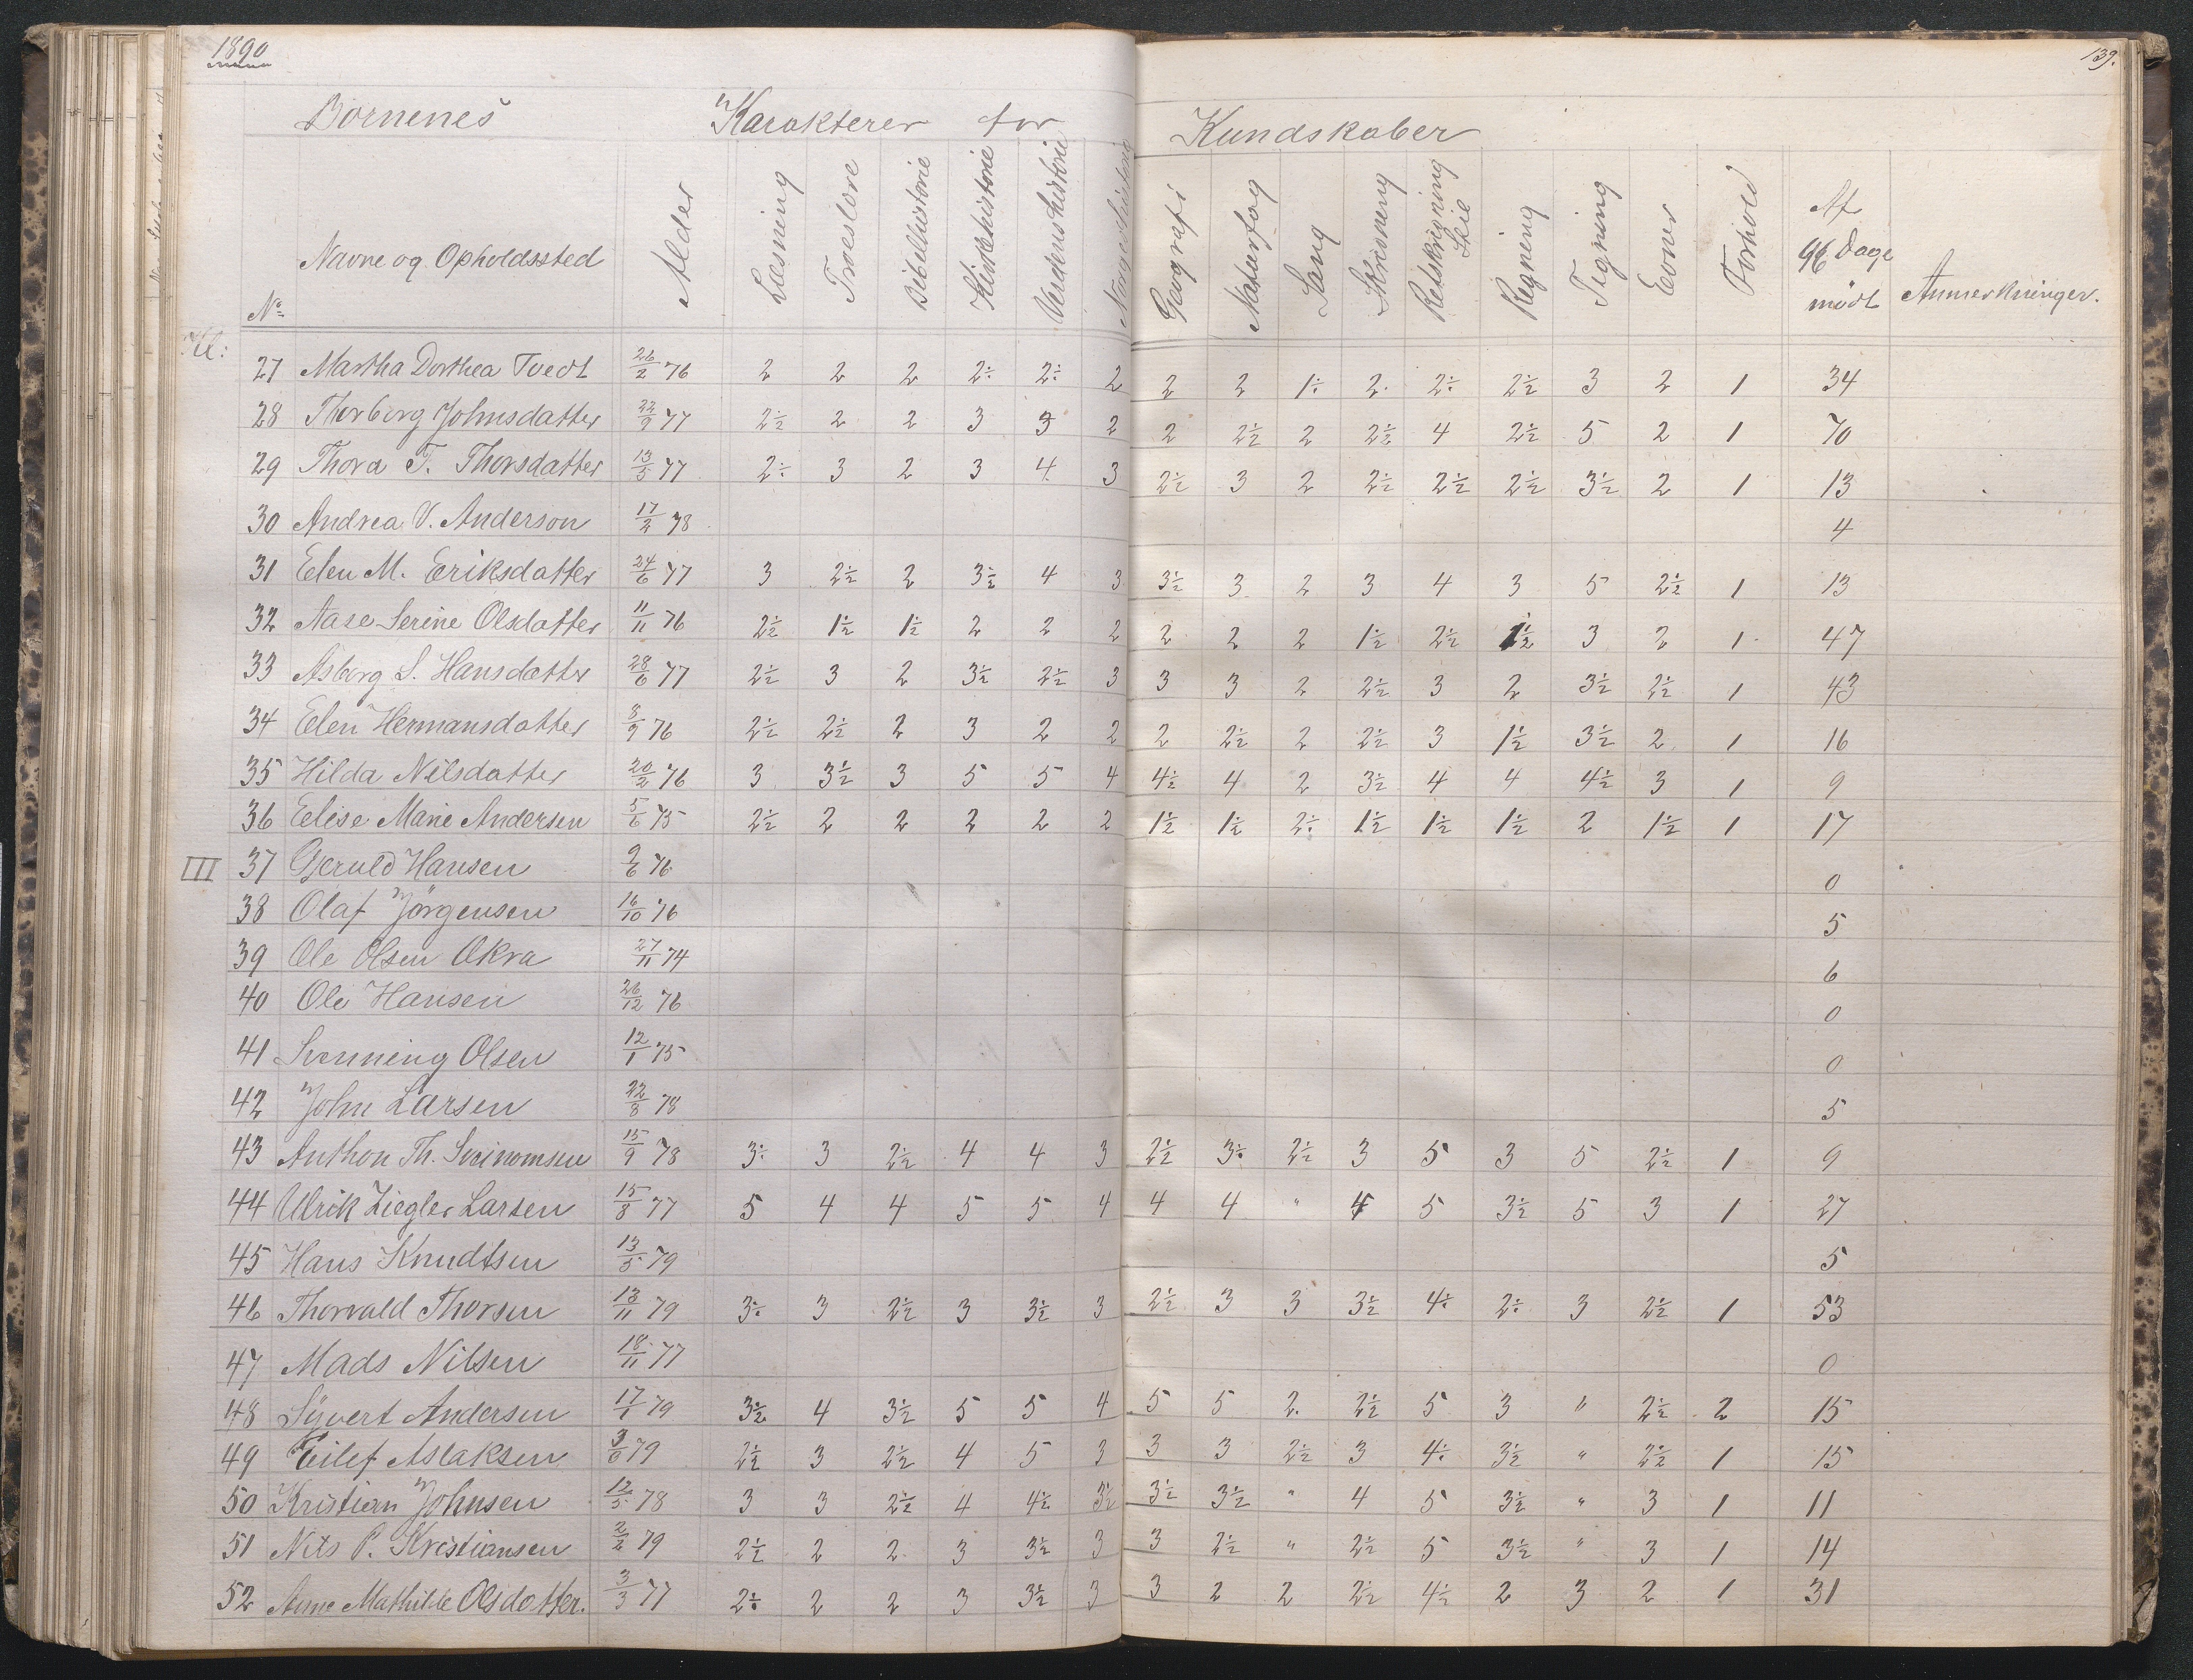 1890
139.
Börnenes Karakterer for Kundskaber
Nº Navne og Opholdssted Alder Læsning Troeslære Bibelhistorie Kirkehistorie Verdenshistorie Norgeshistorie Geografi Naturfag Sang Skrivning Retskrivning Stil Regning Tegning Evner Forhold Af 96 Dage mödt Anmerkninger.
Kl:
27 Martha Dorthea Tvedt 26/2 76 2 2 2 2÷ 2÷ 2 2 2 1÷ 2· 2÷ 2½ 3 2 1 34
28 Thorborg Johnsdatter 22/9 77 2½ 2 2 3 3 2 2 2½ 2 2½ 4 2½ 5 2 1 70
29 Thora T. Thorsdatter 13/5 77 2÷ 3 2 3 4 3 2½ 3 2 2½ 2½ 2½ 3½ 2 1 13
30 Andrea V. Anderson 17/2 78 4
31 Elen M. Eriksdatter 24/6 77 3 2½ 2 3½ 4 3 3½ 3 2 3 4 3 5 2½ 1 13
32 Aase Serine Olsdatter 11/11 76 2½ 1½ 1½ 2 2 2 2 2 2 1½ 2½ 1½ 3 2 1 47
33 Asborg S. Hansdatter 28/6 77 2½ 3 2 3½ 2½ 3 3 3 2 2½ 3 2 3½ 2½ 1 43
34 Elen Hermansdatter 8/9 76 2½ 2½ 2 3 2 2 2 2½ 2 2½ 3 1½ 3½ 2 1 16
35 Hilda Nilsdatter 20/2 76 3 3½ 3 5 5 4 4½ 4 2 3½ 4 4 4½ 3 1 9
36 Elise Marie Andersen 5/6 75 2½ 2 2 2 2 2 1½ 1½ 2÷ 1½ 1½ 1½ 2 1½ 1 17
III 37 Gerald Hansen 9/6 76 0
38 Olaf Jörgensen 16/10 76 5
39 Ole Olsen Okra 27/11 74 6
40 Ole Hansen 26/12 76 0
41 Svenning Olsen 12/1 75 0
42 John Larsen 22/8 78 5
43 Anthon Th. Sveinomsen 15/9 78 3÷ 3 2½ 4 4 3 2½ 3÷ 2½ 3 5 3 5 2½ 1 9
44 Ulrik Ziegler Larsen 15/8 77 5 4 4 5 5 4 4 4 " 4 5 3½ 5 3 1 27
45 Hans Knudtsen 13/5 79 5
46 Thorvald Thorsen 13/11 79 3÷ 3 2½ 3 3½ 3 2½ 3 3 3½ 4÷ 2÷ 3 2½ 1 53
47 Mads Nilsen 18/11 77 0
48 Syvert Andersen 17/1 79 3½ 4 3½ 5 5 4 5 5 2 2½ 5 3 " 2½ 2 15
49 Eilef Aslaksen 3/6 79 2½ 3 2½ 4 5 3 3 3 2½ 3 4÷ 3½ " 2½ 1 15
50 Kristian Johnsen 12/5 78 3 3 2½ 4 4½ 3½ 3½ 3½ " 4 5 3½ " 3 1 11
51 Nils P. Kristiansen 2/2 79 2½ 2 2 3 3½ 3 3 2½ " 2½ 5 3½ " 3 1 14
52 Anne Mathilde Olsdatter. 3/3 77 2÷ 2 2 3 3½ 3 3 2 2 2½ 4½ 2 3 2 1 31